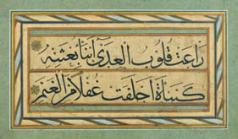 راعت قلوب العدى أنباء بعثته
كنبأة أجفلت غفلا من الغنم